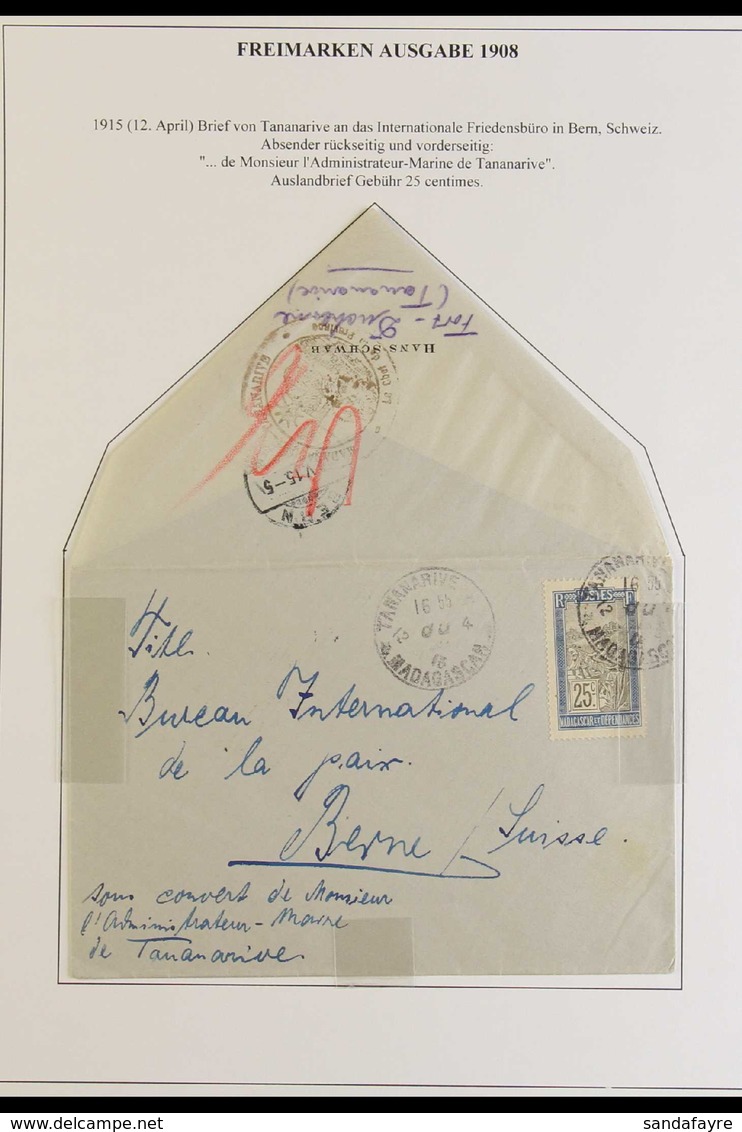 FREIMARKEN AUSGABE 1908
1915 (12. April) Brief von Tananarive an das Internationale Friedensbüro in Bern, Schweiz.
Absender rückseitig und vorderseitig:
"... de Monsieur l'Administrateur-Marine de Tananarive".
Auslandbrief Gebühr 25 centimes.
Fort - Duchesne
(Tananarive)
HANS SCHWAB
TANANARIVE
16 55
12 4
15
MADAGASCAR
TANANARIVE
16 55
12
MADAGASC
POSTES
25c
MADAGASCAR ET DÉPENDANCES
Titl.
Bureau International
de la paix.
Berne / Suisse.
sous couvert de Monsieur
l'Administrateur-Maire
de Tananarive.
sandafayre